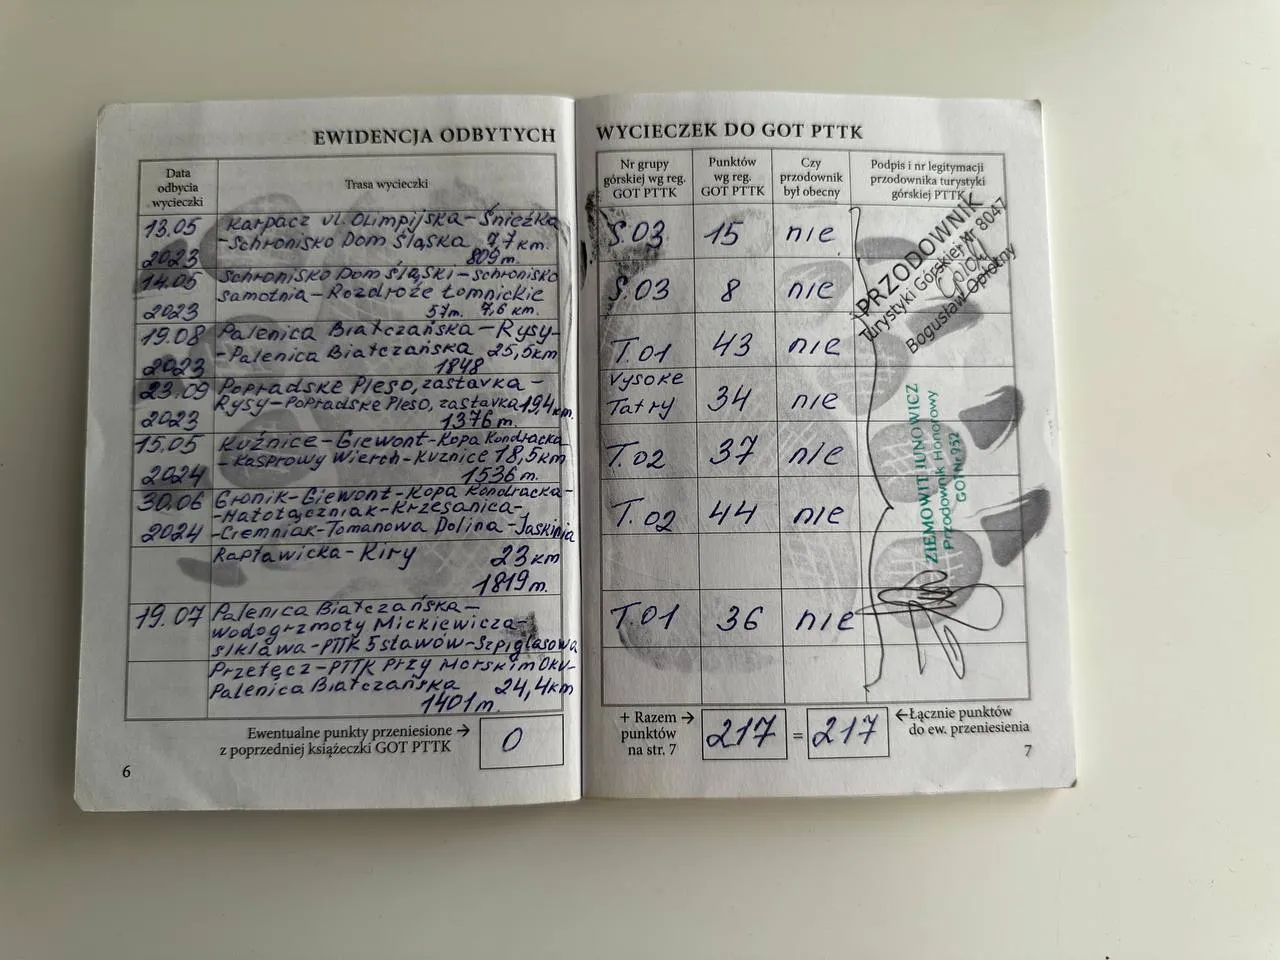 EWIDENCJA ODBYTYCH
Data odbycia wycieczki
Trasa wycieczki
13.05 2023
Karpacz ul. Olimpijska - Śnieżka
- Schronisko Dom Śląska 9,7 km.
809 m.
14.05 2023
Schronisko Dom Śląski - Schronisko
Samotnia - Rozdroże Łomnickie
57 m. 7,6 km.
19.08 2023
Palenica Białczańska - Rysy -
- Palenica Białczańska 25,5 km
1848
23.09 2023
Popradske Pleso, zastavka -
Rysy - Popradske Pleso, zastavka 19,4 km.
1376 m.
15.05 2024
Kuźnice - Giewont - Kopa Kondracka
- Kasprowy Wierch - Kuznice 18,5 km
1536 m.
30.06 2024
Gronik - Giewont - Kopa Kondracka -
- Małołączniak - Krzesanica -
- Ciemniak - Tomanowa Dolina - Jaskinia
Rapławicka - Kiry 23 km
1819 m.
19.07
Palenica Białczańska -
Wodogrzmoty Mickiewicza -
Siklawa - PTTK 5 stawów - Szpiglasowa
Przełęcz - PTTK przy Morskim Oku -
Palenica Białczańska 24,4 km
1401 m.
Ewentualne punkty przeniesione →
z poprzedniej książeczki GOT PTTK
0
6
WYCIECZEK DO GOT PTTK
Nr grupy górskiej wg reg. GOT PTTK
Punktów wg reg. GOT PTTK
Czy przodownik był obecny
Podpis i nr legitymacji przodownika turystyki górskiej PTTK
S.03 15 nie
S.03 8 nie
T.01 43 nie
Vysoke Tatry 34 nie
T.02 37 nie
T.02 44 nie
T.01 36 nie
PRZODOWNIK
Turystyki Górskiej Nr 8047
Bogusław
ZIEMOWIT IUNOWICZ
Przodownik Honorowy
GOT Nr 952
+ Razem →
punktów
na str. 7
217 = 217
← Łącznie punktów
do ew. przeniesienia
7